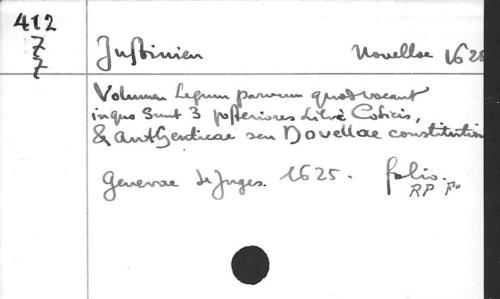 412
7
7
Justinien Novellae 1625
Volumen Legum parvum quod vocant
in quo sunt 3 posteriores Libri Codicis,
& authenticae seu Novellae constitution
Genevae de Juges. 1625. folio.
RP Fo